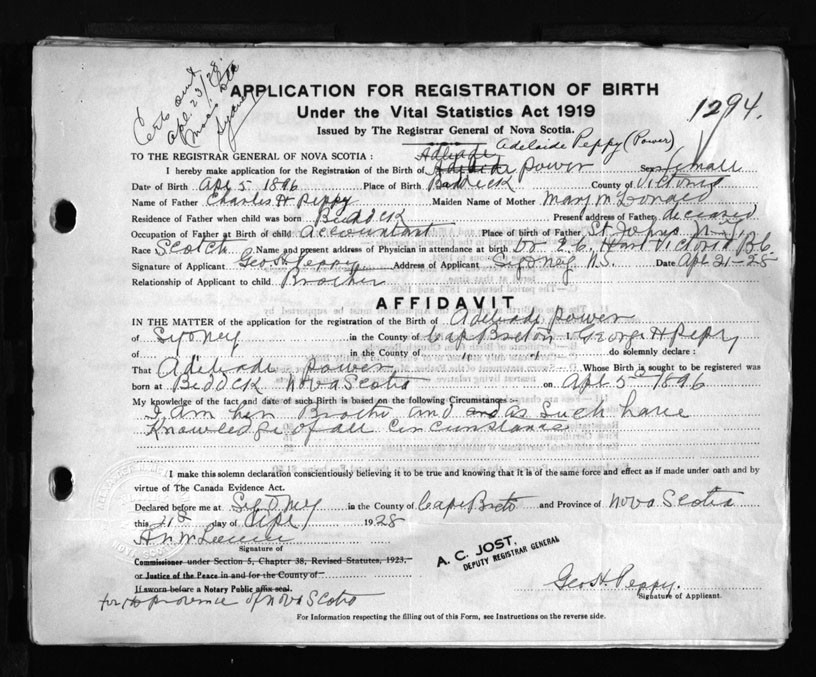 Certs out
apl 23/28.
APPLICATION FOR REGISTRATION OF BIRTH
1294.
Under the Vital Statistics Act 1919
Issued by The Registrar General of Nova Scotia.
Adelaide Peppy (Power)
TO THE REGISTRAR GENERAL OF NOVA SCOTIA :
I hereby make application for the Registration of the Birth of Power Sex female
Date of Birth Apl 5 1896 Place of Birth Baddeck County of Victoria
Name of Father Charles H Peppy Maiden Name of Mother Mary McDonald
Residence of Father when child was born Beddeck Present address of Father deceased
Occupation of Father at Birth of child accountant Place of birth of Father St Johns
Race Scotch Name and present address of Physician in attendance at birth Dr Victoria B C
Signature of Applicant Geo H Peppy Address of Applicant Sydney N.S. Date Apl 21-28
Relationship of Applicant to child Brother
AFFIDAVIT
IN THE MATTER of the application for the registration of the Birth of Adelaide Power
of Sydney in the County of Cap Breton George H Peppy
of in the County of " " do solemnly declare :
That Adelaide Power Whose Birth is sought to be registered was
born at Beddeck Nova Scotia on Apl 5th 1896
My knowledge of the fact and date of such Birth is based on the following Circumstances :-
I am her Brother and and as such have
Knowledge of all Circumstances
I make this solemn declaration conscientiously believing it to be true and knowing that it is of the same force and effect as if made under oath and by
virtue of The Canada Evidence Act.
Declared before me at Sydney in the County of Cape Breton and Province of Nova Scotia
this 21st day of Apl 1928
Signature of
Commissioner under Section 5, Chapter 38, Revised Statutes, 1923,
or Justice of the Peace in and for the County of
If sworn before a Notary Public affix seal.
for the province of Nova Scotia
A. C. JOST.
DEPUTY REGISTRAR GENERAL
Geo H. Peppy.
Signature of Applicant.
For Information respecting the filling out of this Form, see Instructions on the reverse side.